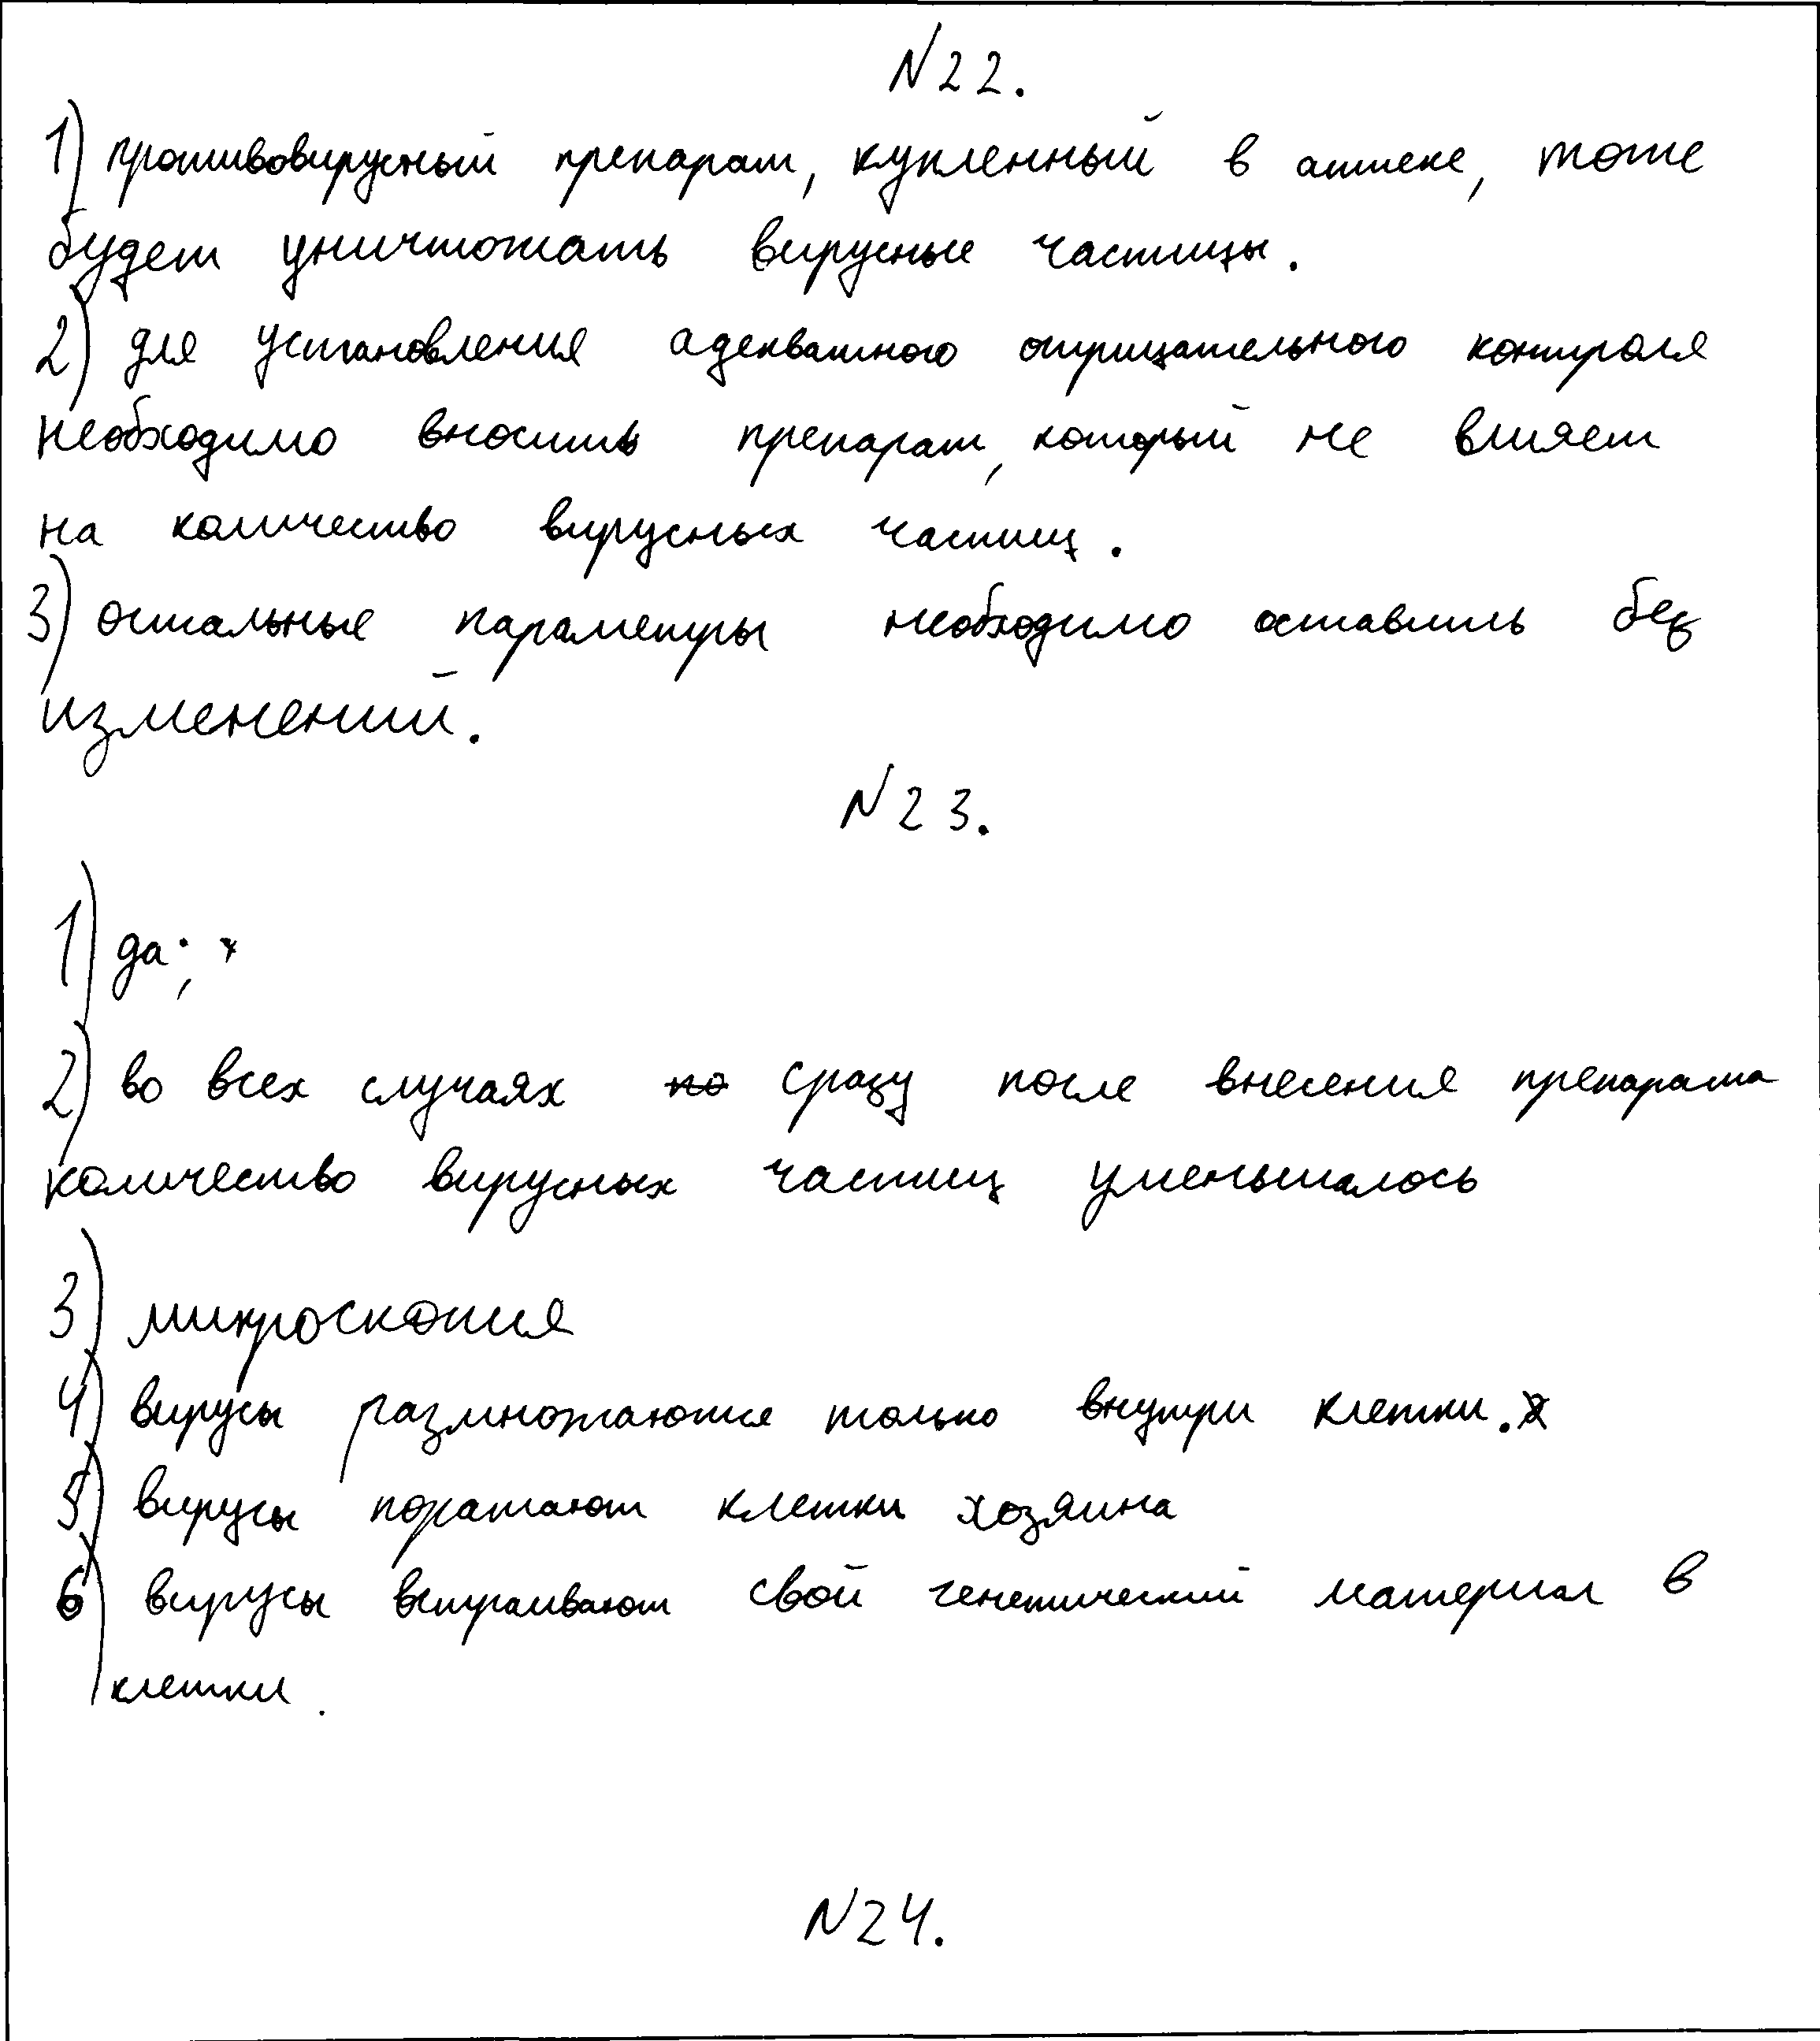 N22.
1) противовирусный препарат, купленный в аптеке, тоже
будет уничтожать вирусные частицы.
2) для установления адекватного отрицательного контроля
необходимо вносить препарат, который не влияет
на количество вирусных частиц.
3) остальные параметры необходимо оставить без
изменений.
N23.
1) да;
2) во всех случаях по сразу после внесения препарата
количество вирусных частиц уменьшалось
3) микроскопия
4) вирусы размножаются только внутри клетки.
5) вирусы поражают клетки хозяина
6) вирусы встраивают свой генетический материал в
клетки.
N24.